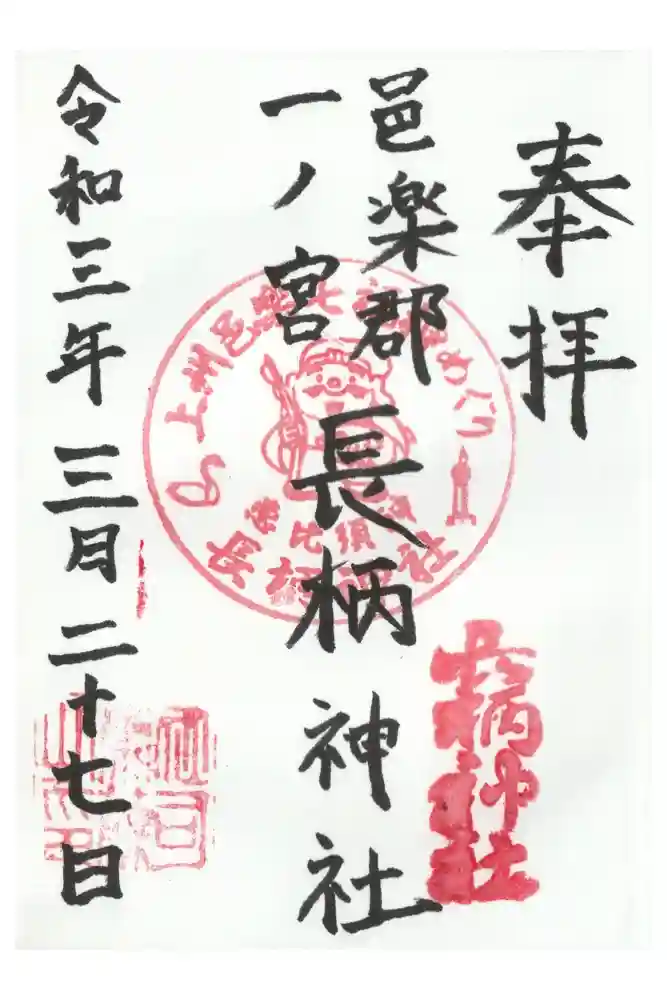 奉拝
邑楽郡
一ノ宮
長柄神社
令和三年三月二十七日
上州邑楽七福神めぐり
恵比須神
長柄神社
長柄神社